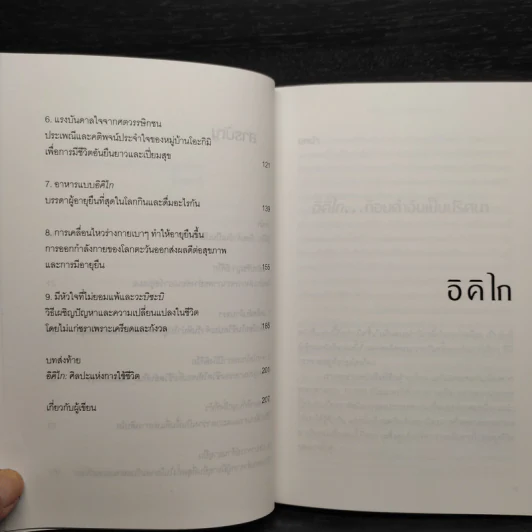 6. แรงบันดาลใจจากศตวรรษิกชน
ประเพณีและคติพจน์ประจำใจของหมู่บ้านโอะกิมิ
เพื่อการมีชีวิตอันยืนยาวและเปี่ยมสุข
121
7. อาหารแบบอิคิไก
บรรดาผู้อายุยืนที่สุดในโลกกินและดื่มอะไรกัน
139
8. การเคลื่อนไหวร่างกายเบาๆ ทำให้อายุยืนขึ้น
การออกกำลังกายของโลกตะวันออกส่งผลดีต่อสุขภาพ
และการมีอายุยืน
155
9. มีหัวใจที่ไม่ยอมแพ้และวะบิซะบิ
วิธีเผชิญปัญหาและความเปลี่ยนแปลงในชีวิต
โดยไม่แก่ชราเพราะเครียดและกังวล
บทส่งท้าย
อิคิไก: ศิลปะแห่งการใช้ชีวิต
เกี่ยวกับผู้เขียน
อิคิไก